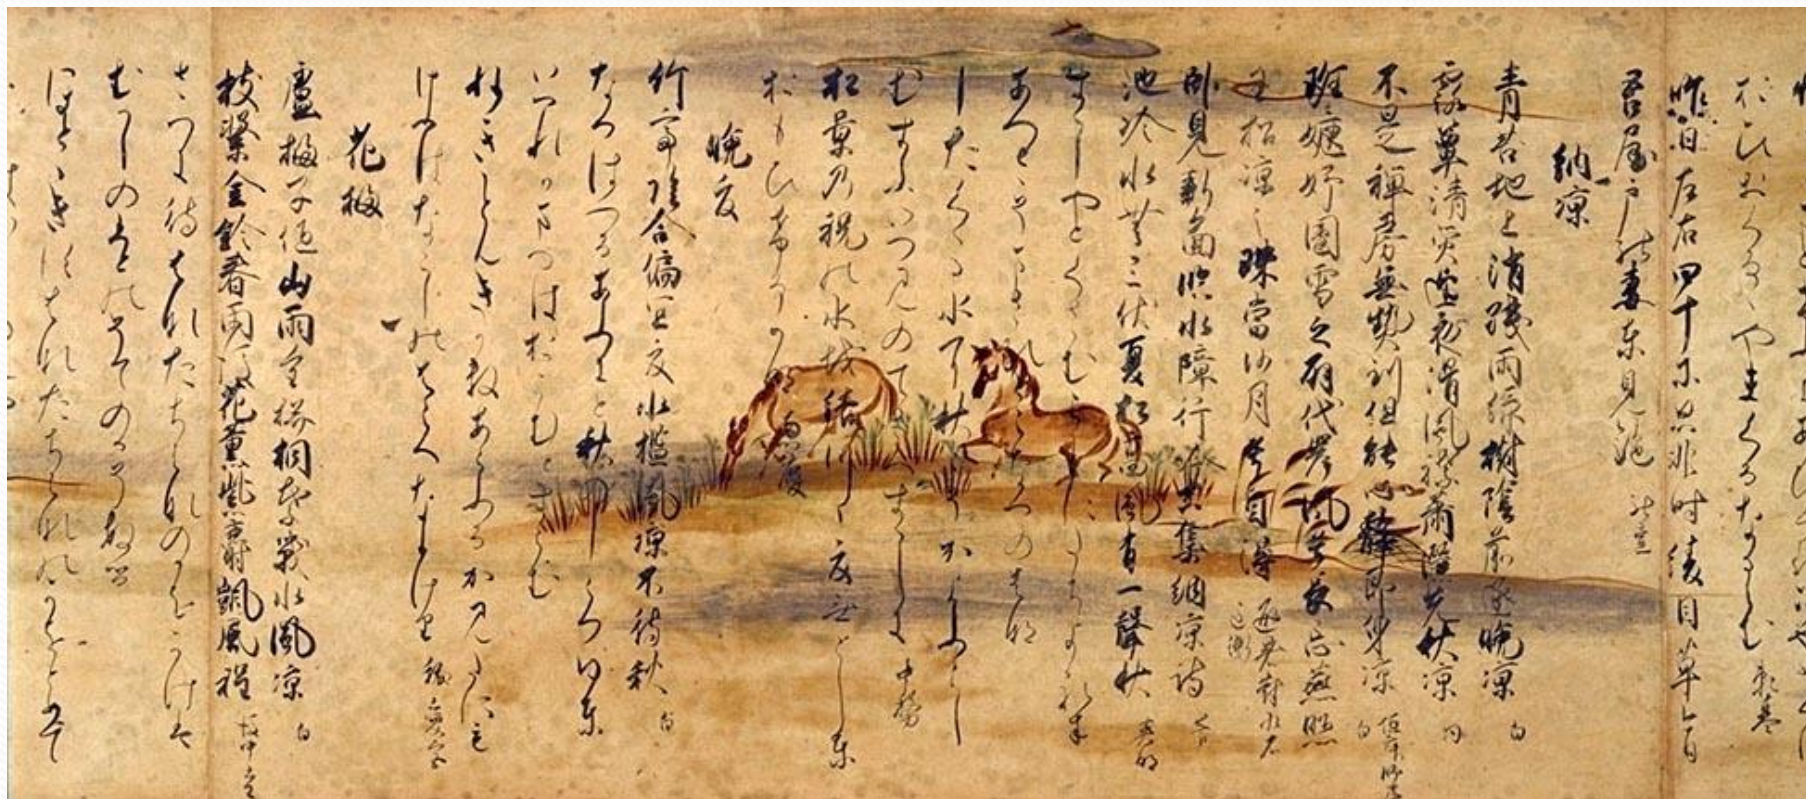 おひおくるゝやまくるなるらむ 頼基
昨日左右四十尓思非時綾目草今日
吾屋戸能妻東見流 能宣
納涼
青苔地上消残雨緑樹陰前逐晩涼 白
露簟清瑩迎夜滑風襟蕭灑先秋涼 同
不是禅房無熱到但能心静即身涼 白
班婕妤團雪之扇代岸風兮長忘燕昭
王招涼之珠當沙月兮自得 避暑對水石 匡衡
臥見新圖臨水障行吟古集納涼詩 菅
池冷水無三伏夏松高風有一聲秋 英明
すゝしやとくさむらことにたちよれは
あつさそまされるとこなつのはな
したくくる水に秋こそかよふらし
むすふいつみのてさへすゝしき 中務
松蔭乃
おもひけるかな 恵慶
晩夏
竹亭陰合偏宜夏水檻風涼不待秋 白
なつはつるあふきと秋のしらつゆと
いつれかさきにおかむとすらむ
ねきことをきかすあらふるかみたにも
けふはなこしのはらへなりけり
花橘
盧橘子低山雨重栟櫚葉戰水風涼 白
枝繋金鈴春雨後花薫紫麝凱風程 後中書王
さつきまつはなたちはなのかをかけは
むかしのひとのそてのかそする
ほとゝきすはなたちはなのかをとめて